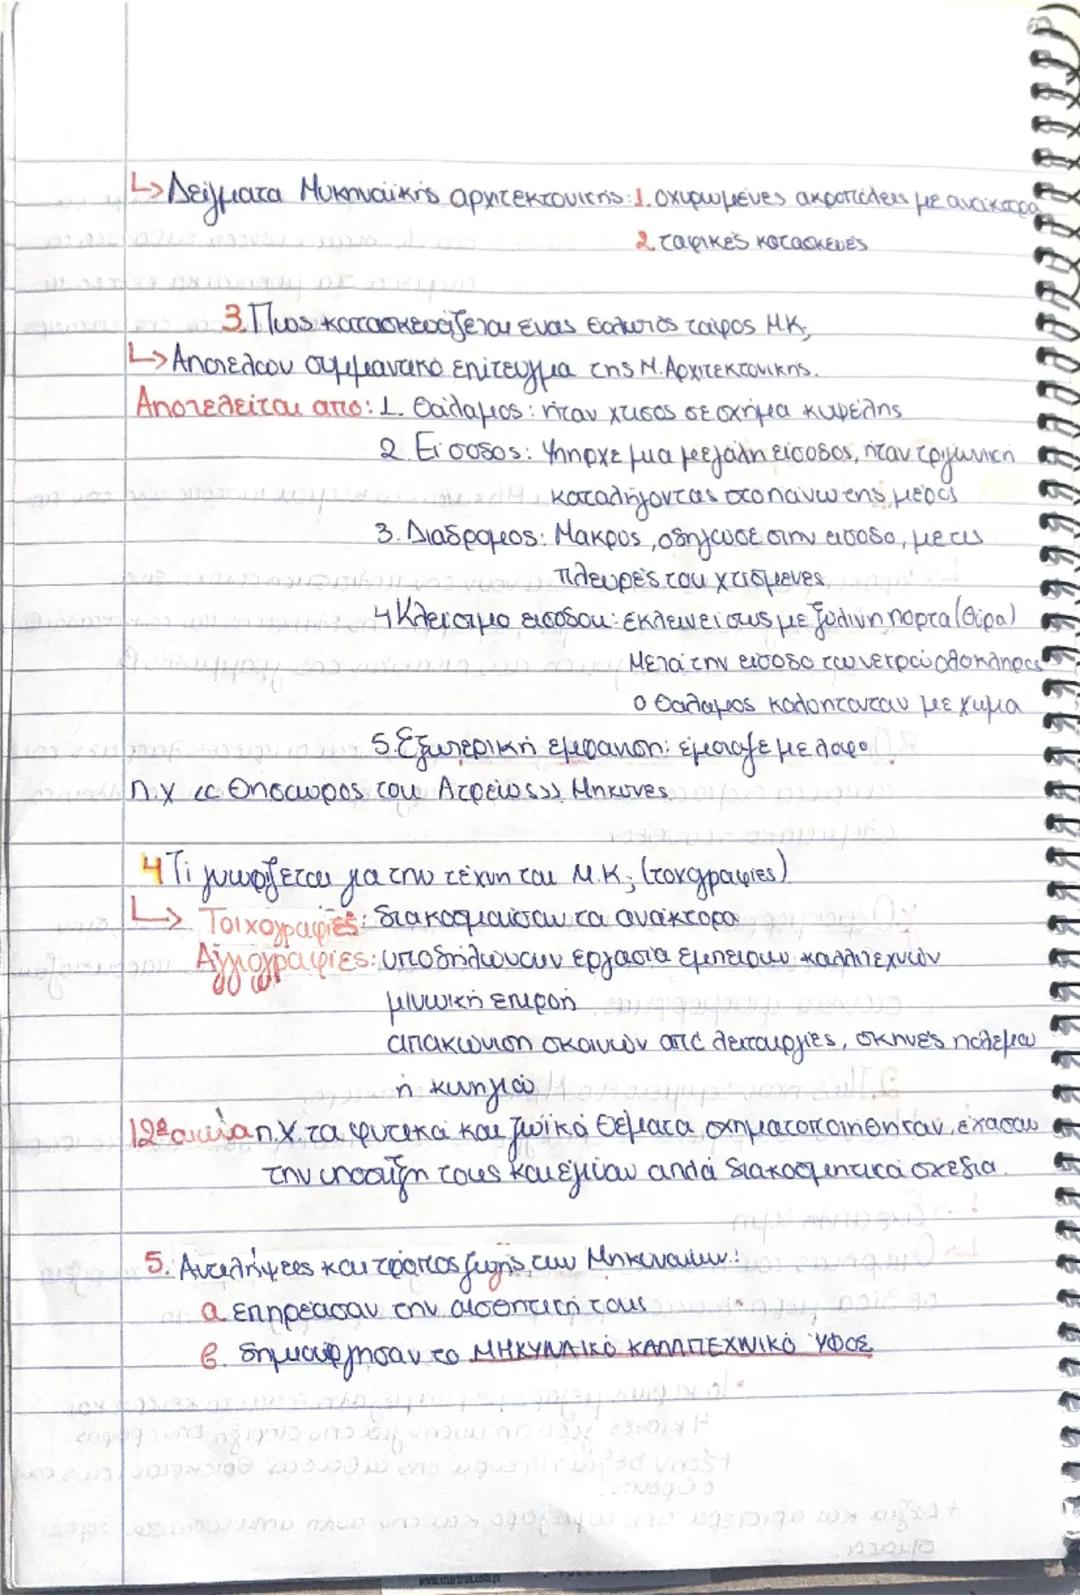 ↳ Δείγματα Μυκηναϊκής αρχιτεκτονικής: 1. οχυρωμένες ακροπόλεις με ανάκτορα
2. ταφικές κατασκευές
3. Πως κατασκευάζεται ένας θολωτός τάφος Μ.Κ;
↳ Αποτελουν σημμαντικό επίτευγμα της Μ. Αρχιτεκτονικης.
Αποτελείται από: 1. Θάλαμος: ήταν χτισος σε σχήμα κυψέλης
2. Είσοδος: Υπηρχε μια μεγάλη είσοδος, ήταν τριγωνική
καταλήγοντας στο πάνω της μέρος
3. Διάδρομος: Μακρυς, οδηγουσε στην εισοδο, με τις
πλευρές του χτισμενες
4 Κλείσιμο εισόδου: έκλεινει τους με ξύλινη πορτα (θύρα)
Μετα την εισοδο του νεκρού ολοκληρος
ο θαλαμος καλυπτονταν με χωμα
5. Εξωτερική εμφανιση: έμοιαζε με λοφο
π.χ << Θησαυρος του Ατρέως>> Μηκυνες
4 Τι γνωρίζεται για την τέχνη του Μ.Κ; (τοιχογραφιες)
↳ Τοιχογραφίες: διακοσμούσαν τα ανάκτορα
Αγγιογραφίες: υποδηλώνουν εργασία εμπειρων καλλιτεχνών
μινωική επιροή
απεικώνιση σκηνών από λειτουργίες, σκηνές πολέμου
ή κυνηγιού
12ο αιώνα π.Χ. τα φυτικά και ζωικά θέματα σχηματοποιήθηκαν, έχασαν
την υποσταξη τους και εγιναν απλά διακοσμητικά σχέδια.
5. Αντιλήψεις και τρόπος ζωής των Μηκυναιων:
α. επηρέασαν την αισθητική τους
β. δημιούργησαν το ΜΗΚΥΝΑΙΚΟ ΚΑΛΛΙΤΕΧΝΙΚΟ ΎΦΟΣ